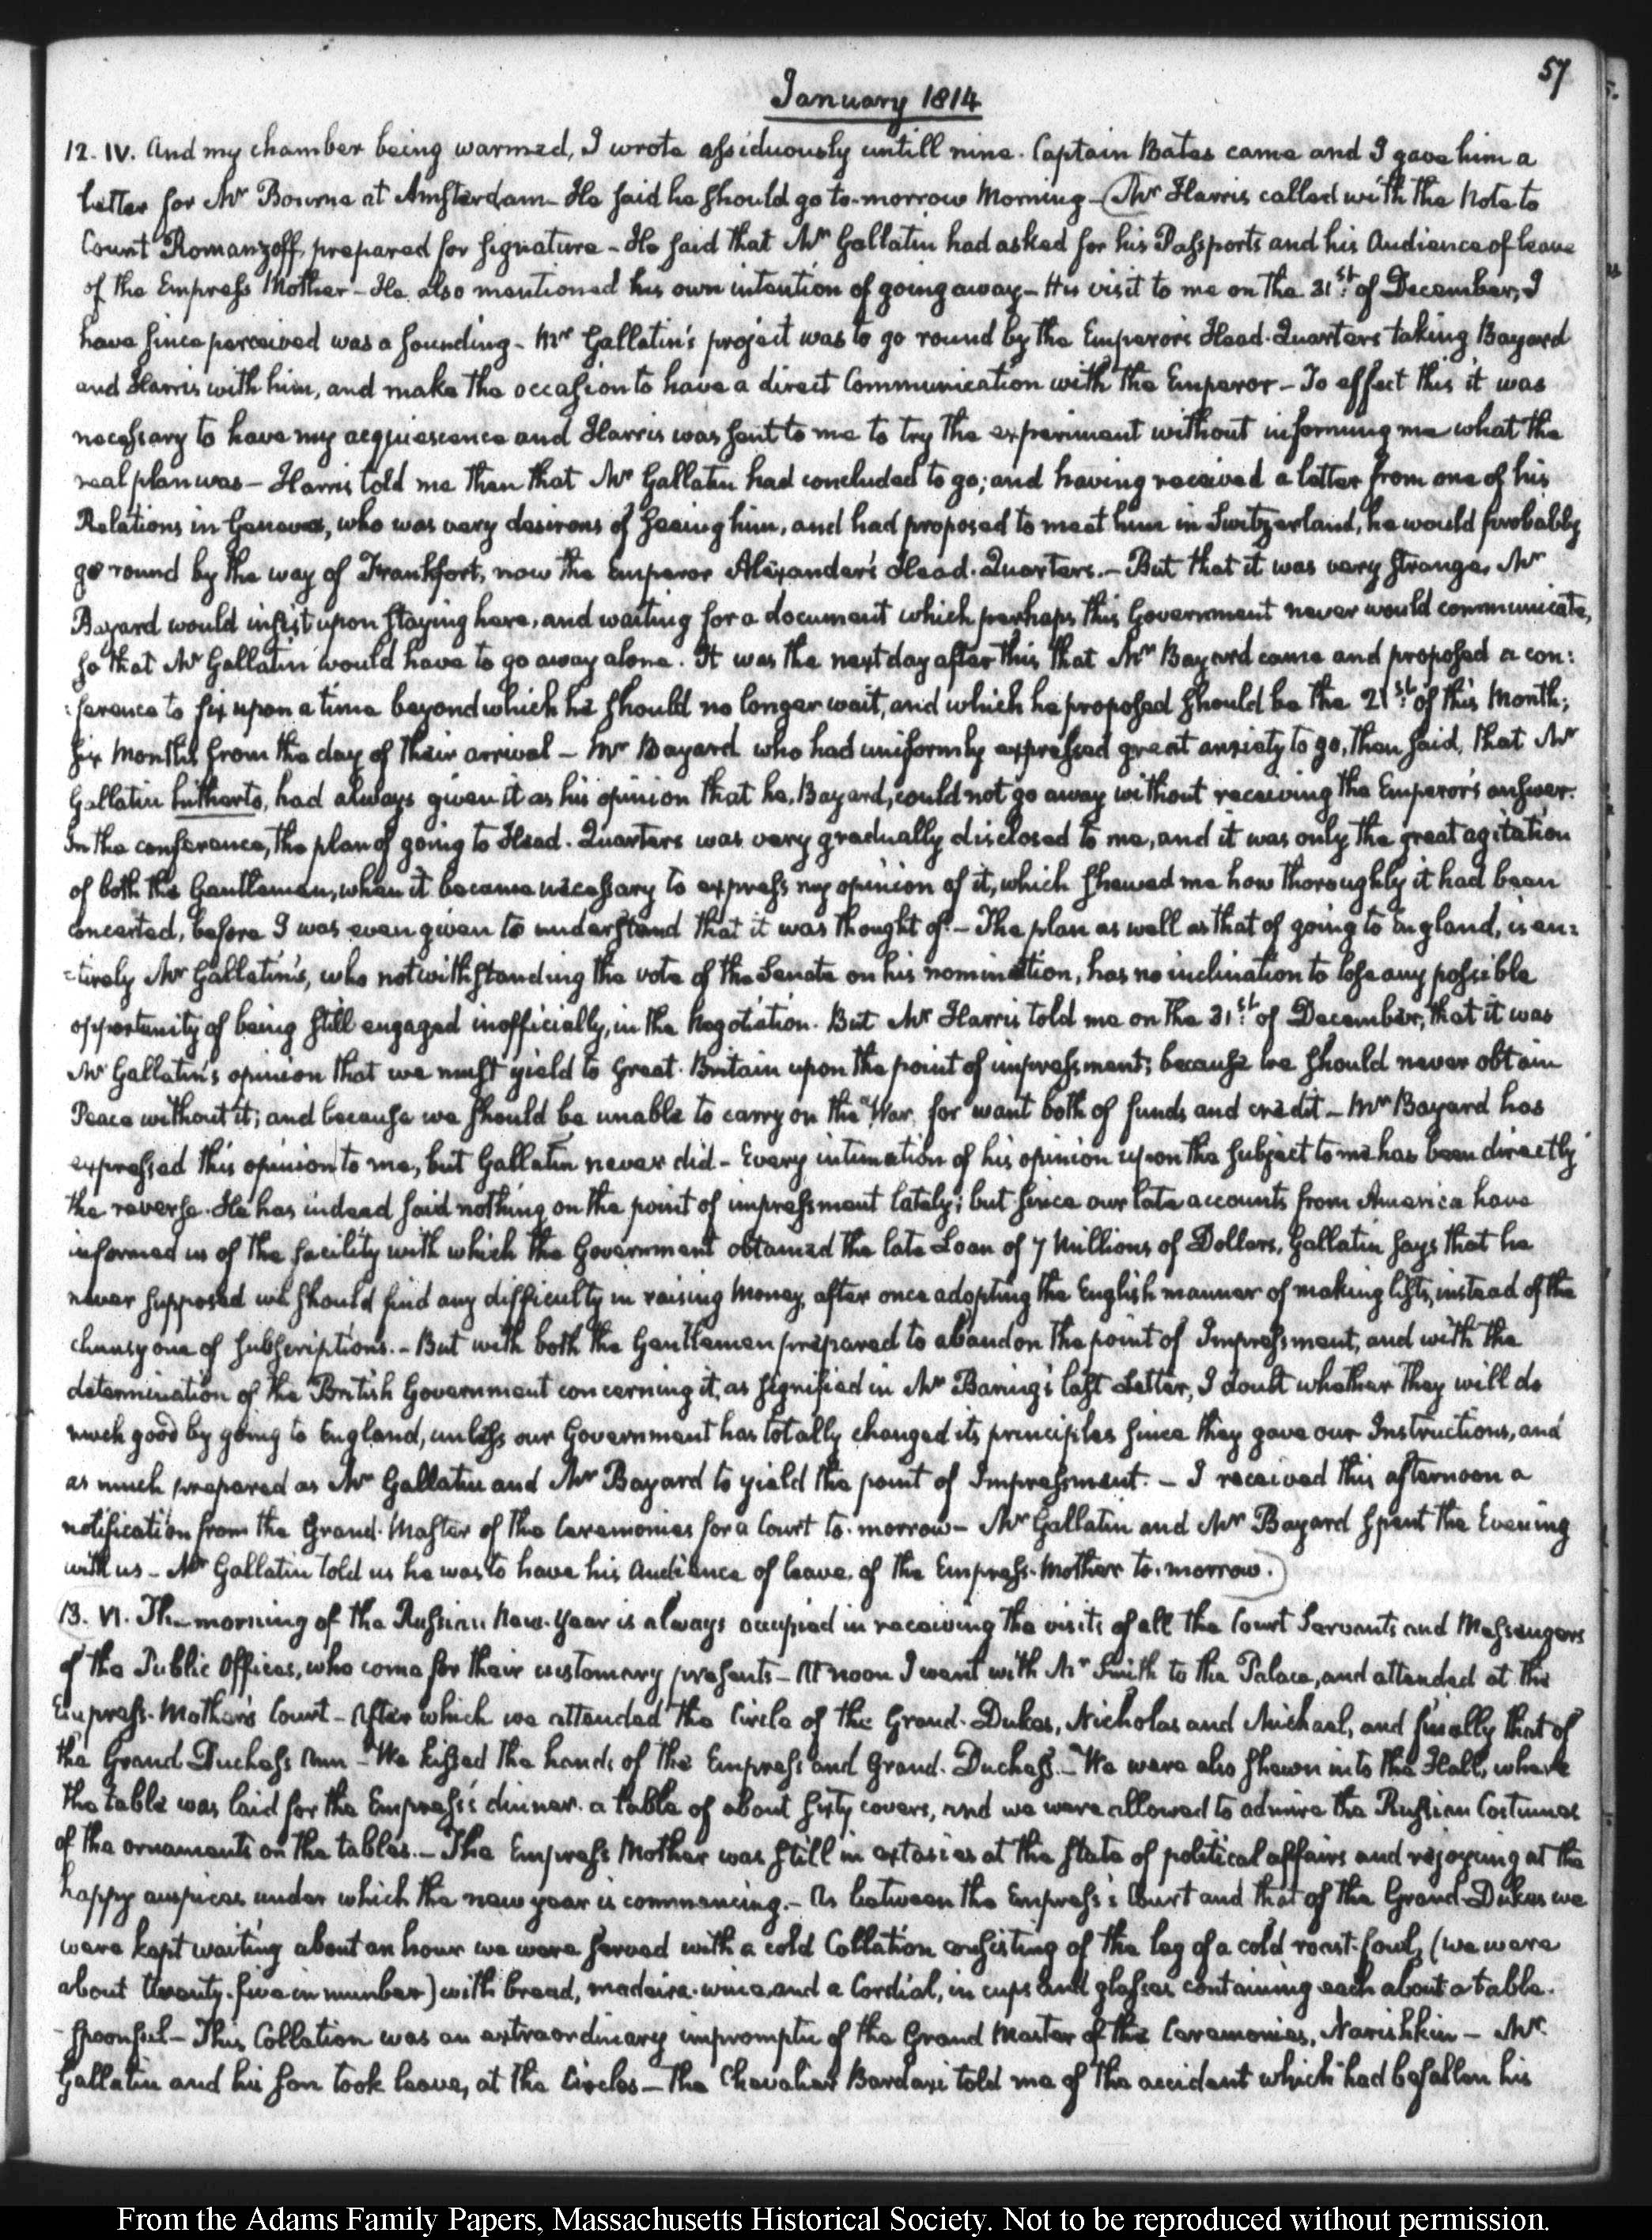 57
January 1814
12. IV. And my chamber being warmed, I wrote assiduously untill nine. Captain Bates came and I gave him a
letter for Mr Bourne at Amsterdam_ He said he should go to-morrow Morning_ (Mr Harris called with the Note to
Count Romanzoff, prepared for signature_ He said that Mr Gallatin had asked for his Passports and his Audience of leave
of the Empress Mother_ He also mentioned his own intention of going away_ His visit to me on the 31st of December, I
have since perceived was a sounding_ Mr Gallatin's project was to go round by the Emperor's Head-Quarters taking Bayard
and Harris with him, and make the occasion to have a direct Communication with the Emperor_ To effect this it was
necessary to have my acquiescence and Harris was sent to me to try the experiment without informing me what the
real plan was_ Harris told me then that Mr Gallatin had concluded to go; and having received a letter from one of his
Relations in Geneva, who was very desirous of seeing him, and had proposed to meet him in Switzerland, he would probably
go round by the way of Frankfort, now the Emperor Alexander's Head-Quarters._ But that it was very strange, Mr
Bayard would insist upon staying here, and waiting for a document which perhaps this Government never would communicate,
so that Mr Gallatin would have to go away alone. It was the next day after this that Mr Bayard came and proposed a con:
:ference to fix upon a time beyond which he should no longer wait, and which he proposed should be the 21st of this Month;
six Months from the day of their arrival_ Mr Bayard who had uniformly expressed great anxiety to go, then said, that Mr
Gallatin hitherto, had always given it as his opinion that he, Bayard, could not go away without receiving the Emperor's answer.
In the conference, the plan of going to Head-Quarters was very gradually disclosed to me, and it was only the great agitation
of both the Gentlemen, when it became necessary to express my opinion of it, which shewed me how thoroughly it had been
concerted, before I was even given to understand that it was thought of._ The plan as well as that of going to England, is en:
:tirely Mr Gallatin's, who notwithstanding the vote of the Senate on his nomination, has no inclination to lose any possible
opportunity of being still engaged inofficially, in the Negotiation. But Mr Harris told me on the 31st of December, that it was
Mr Gallatin's opinion that we must yield to Great-Britain upon the point of impressment; because we should never obtain
Peace without it; and because we should be unable to carry on the War, for want both of funds and credit_ Mr Bayard has
expressed this opinion to me, but Gallatin never did_ Every intimation of his opinion upon the subject to me has been directly
the reverse. He has indeed said nothing on the point of impressment lately; but since our late accounts from America have
informed us of the facility with which the Government obtained the late Loan of 7 Millions of Dollars, Gallatin says that he
never supposed we should find any difficulty in raising Money, after once adopting the English manner of making lists, instead of the
clumsy one of subscriptions._ But with both the Gentlemen prepared to abandon the point of Impressment, and with the
determination of the British Government concerning it, as signified in Mr Baring's last Letter, I doubt whether they will do
much good by going to England, unless our Government has totally changed its principles since they gave our Instructions, and
as much prepared as Mr Gallatin and Mr Bayard to yield the point of Impressment._ I received this afternoon a
notification from the Grand-Master of the Ceremonies for a Court to-morrow_ Mr Gallatin and Mr Bayard spent the Evening
with us_ Mr Gallatin told us he was to have his Audience of leave, of the Empress-Mother to-morrow.)
13. VI. The morning of the Russian New-Year is always occupied in receiving the visits of all the Court Servants and Messengers
of the Public Offices, who come for their customary presents_ At noon I went with Mr Smith to the Palace, and attended at the
Empress-Mother's Court_ After which we attended the Circle of the Grand-Dukes, Nicholas and Michael, and finally that of
the Grand Duchess Ann_ We kissed the hands of the Empress and Grand-Duchess._ We were also shewn into the Hall, where
the table was laid for the Empress's dinner. a table of about sixty covers, and we were allowed to admire the Russian Costumes
of the ornaments on the tables._ The Empress Mother was still in extasies at the state of political affairs and rejoycing at the
happy auspices under which the new year is commencing._ As between the Empress's Court and that of the Grand-Dukes we
were kept waiting about an hour we were served with a cold Collation consisting of the leg of a cold roast-fowl, (we were
about twenty-five in number) with bread, madeira-wine, and a Cordial, in cups and glasses containing each about a table-
-spoonful_ This Collation was an extraordinary impromptu of the Grand Master of the Ceremonies, Narishkin_ Mr
Gallatin and his son took leave, at the Circles_ The Chevalier Bardaxi told me of the accident which had befallen his
From the Adams Family Papers, Massachusetts Historical Society. Not to be reproduced without permission.